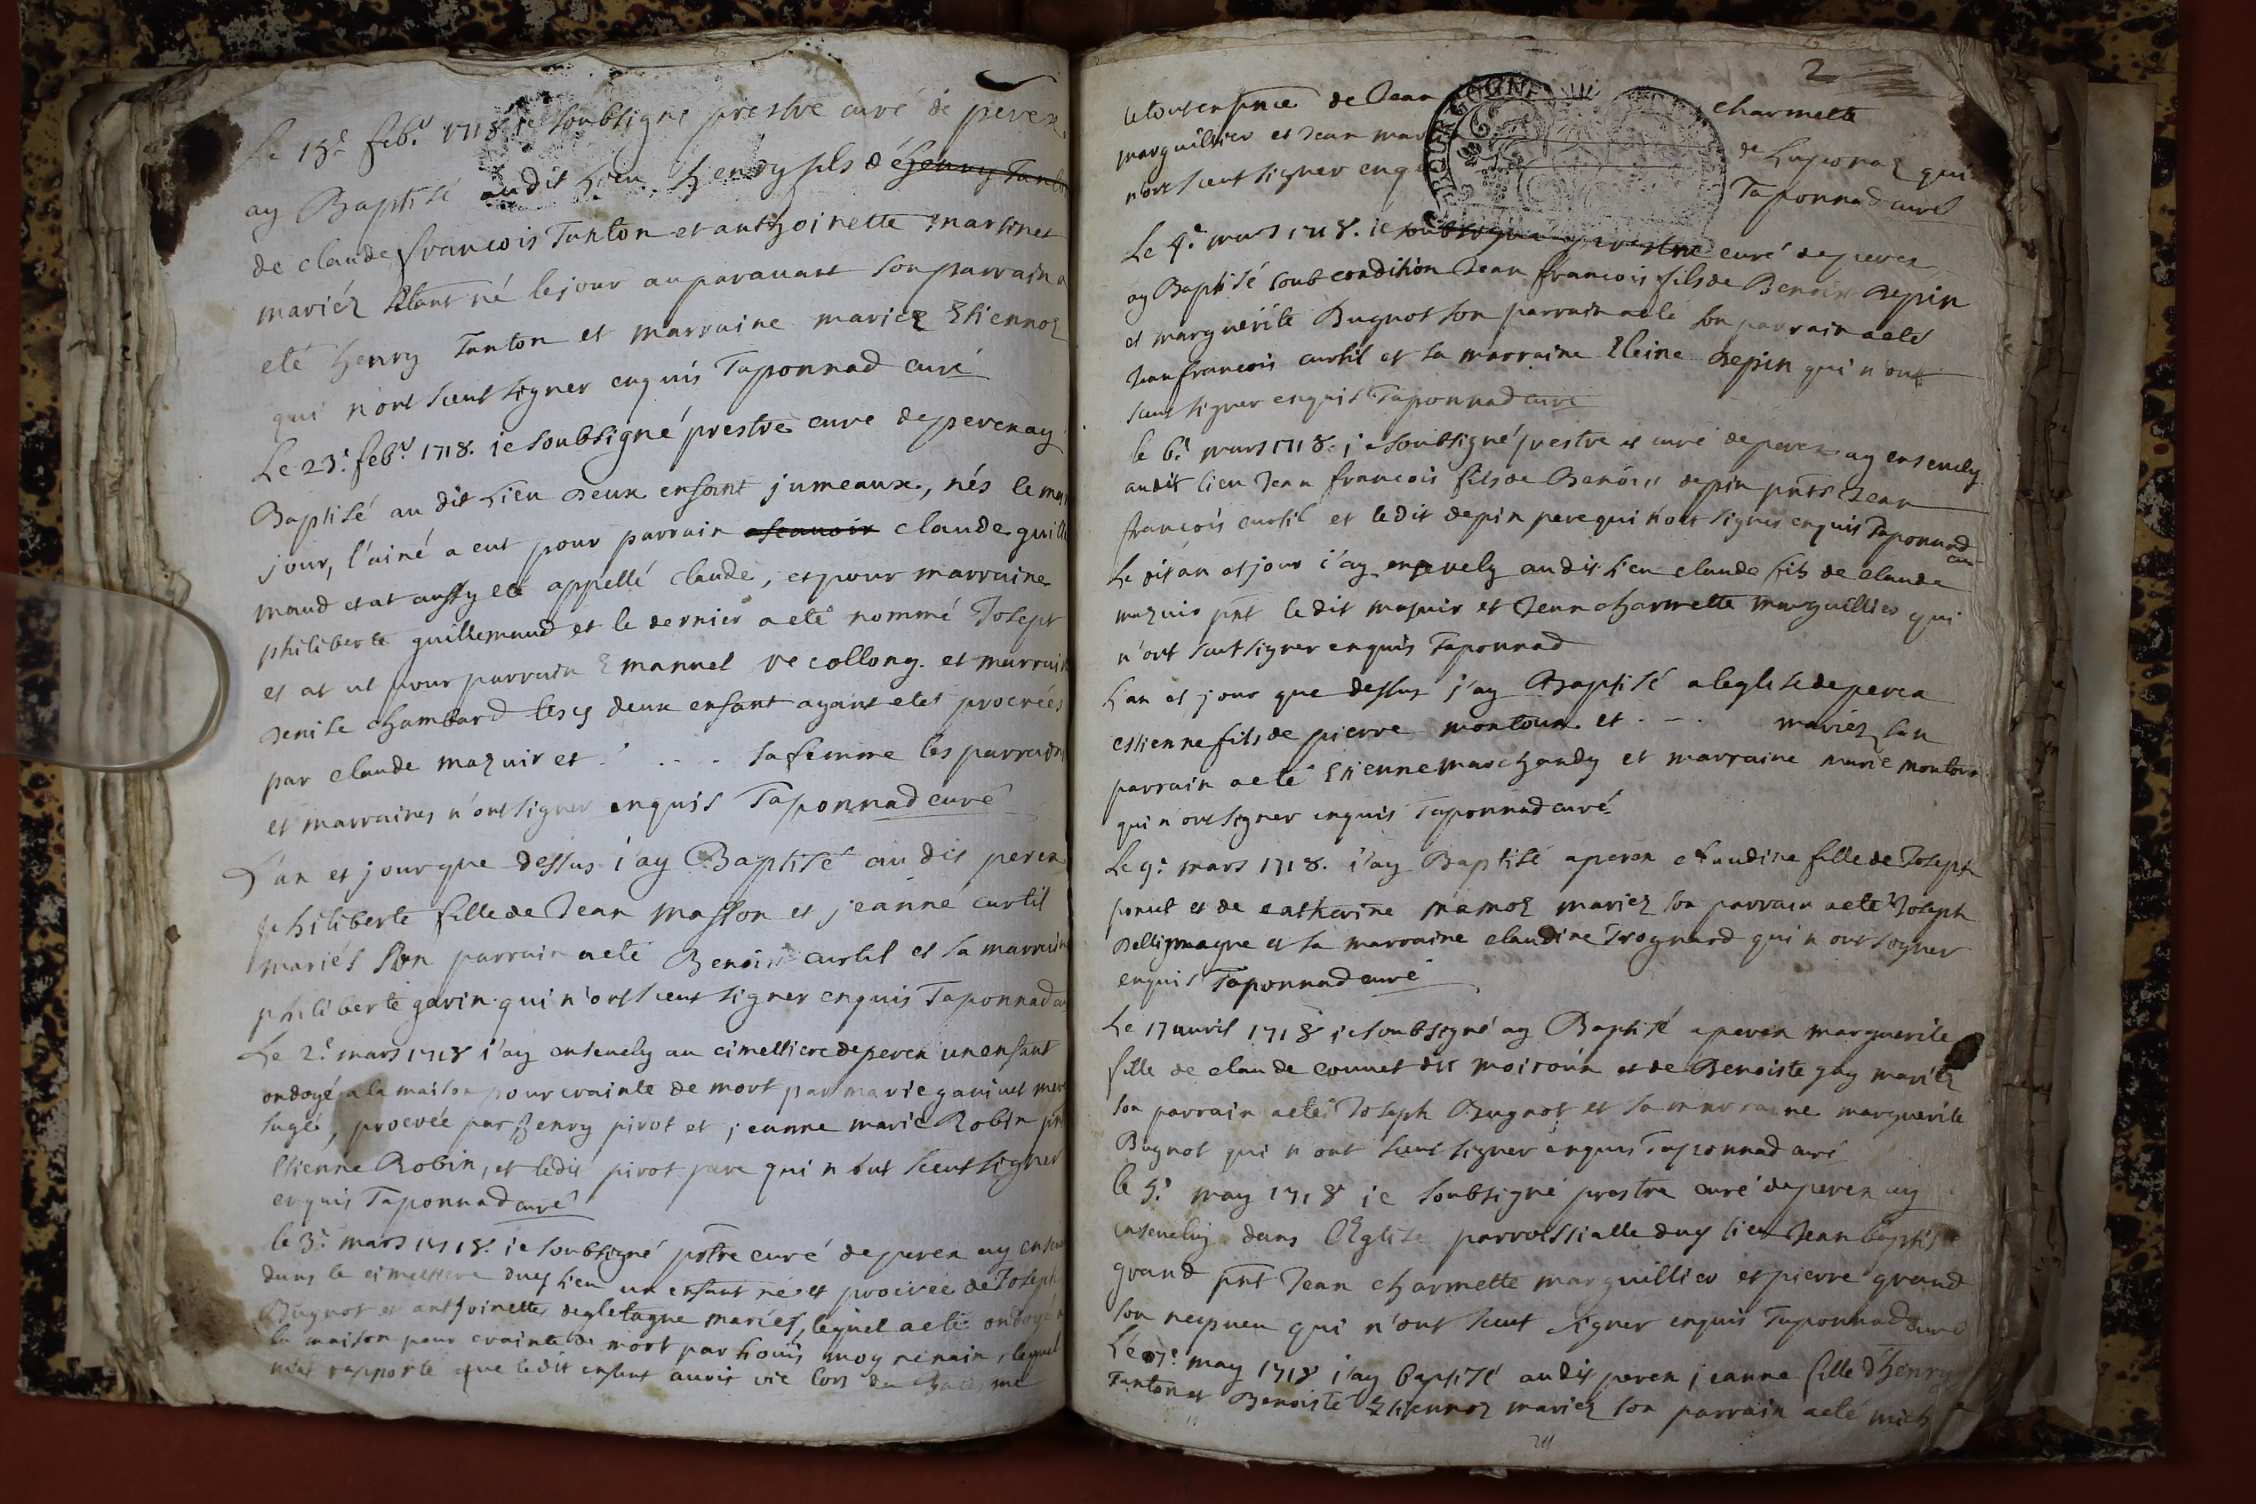 Le 15e feb.r 1718 ie soubsigné prestre curé de peren
ay Baptisé audit Lieu henry fils d'henry Tanton
de claude francois Tanton et anthoinette martinet
mariéz étant né le jour auparavant son parrain a
eté henry Tanton et marraine mariez Etiennoz
qui n'ont sceut signer enquis Taponnad curé
Le 23e feb.r 1718. ie soubsigné prestre curé de peren ay
Baptisé au dit Lieu deux enfant jumeaux, nés le mes
jour, l'ainé a eut pour parrain ascauoir claude guille
maud et at aussy eté appellé claude, et pour marraine
philiberte guillemaud et le dernier a eté nommé Joseph
et at ut pour parrain Emanuel de collong. et marrain
denise chambard lesq deux enfant ayant etet procréés
par claude mazuir et . . . . sa femme les parrains
et marraines n'ont signer enquis Taponnad curé
L'an et jour que dessus i'ay Baptisé au dit peren
philiberte fille de Jean masson et jeanne curtil
mariés son parrain a eté Benoit curtil et la marraine
philiberte gavin qui n'ont sceut signer enquis Taponnad cu
Le 2e mars 1718 i'ay ensevely au cimettiere de peren un enfant
ondoyé a la maison pour crainte de mort par marie gaviut mere
sage, procréé par henry pivot et jeanne marie Robin pnt
Etienne Robin, et ledit pivot pere qui n'ont sceut signer
enquis Taponnad curé
le 3e mars 1718. ie soubsigné pstre curé de peren ay ensev
dans le cimettiere dud Lieu un enfant né et procréé de Joseph
Bugnot et anthoinette degletagne mariés, lequel a eté ondoyé a
la maison pour crainte de mort par Louis moyrenain, lequel
m'at rapporté que ledit enfant avoit vie lors du Batesme
2
le tout en pnce de Jean charmette
marguillier et Jean mar de Luponaz qui
n'ont sceut signer enq Taponnad curé
Le 4e mars 1718. ie soubsigné prestre curé de peren
ay Baptisé soub condition Jean francois fils de Benoit depin
et marguerite Bugnot son parrain a eté son parrain a eté
Jean francois curtil et sa marraine Eleine depin qui n'ont
sceut signer enquis Taponnad curé
le 6e mars 1718. ie soubsigné prestre et curé de peren ay ensevely
audit lieu Jean francois fils de Benoit depin pnts Jean
francois curtil et ledit depin pere qui n'ont signer enquis Taponnad
curé
Le dit an et jour i'ay ensevely audit Lieu claude fils de claude
mazuir pnt ledit mazuir et Jean charmette marguillier qui
n'ont sceut signer enquis Taponnad
L'an et jour que dessus j'ay Baptisé a leglise de peren
estienne fils de pierre montoux et . - . mariez son
parrain a eté Etienne marchandy et marraine marie montoux
qui n'ont signer enquis Taponnad curé
Le 9e mars 1718. i'ay Baptisé a peren claudine fille de Joseph
ponut et de catherine mamoz mariez son parrain a eté Joseph
dellignagne et la marraine claudine Trognard qui n'ont signer
enquis Taponnad curé
Le 17 avril 1718 ie soubsigné ay Baptisé a peren marguerite
fille de claude convert dit moiroux et de Benoiste gay mariéz
son parrain a eté Joseph Bugnot et sa marraine marguerite
Bugnot qui n'ont sceut signer enquis Taponnad curé
le 5e may 1718 ie soubsigné prestre curé de peren ay
ensevely dans l'Eglise parroissialle dud lieu Jean baptiste
grand pnt Jean charmette marguillier et pierre grand
son nepveu qui n'ont sceut signer enquis Taponnad curé
Le 7e may 1718 i'ay baptisé audit peren jeanne fille d'henry
Tanton et Benoiste Etiennoz mariez son parrain a eté mich